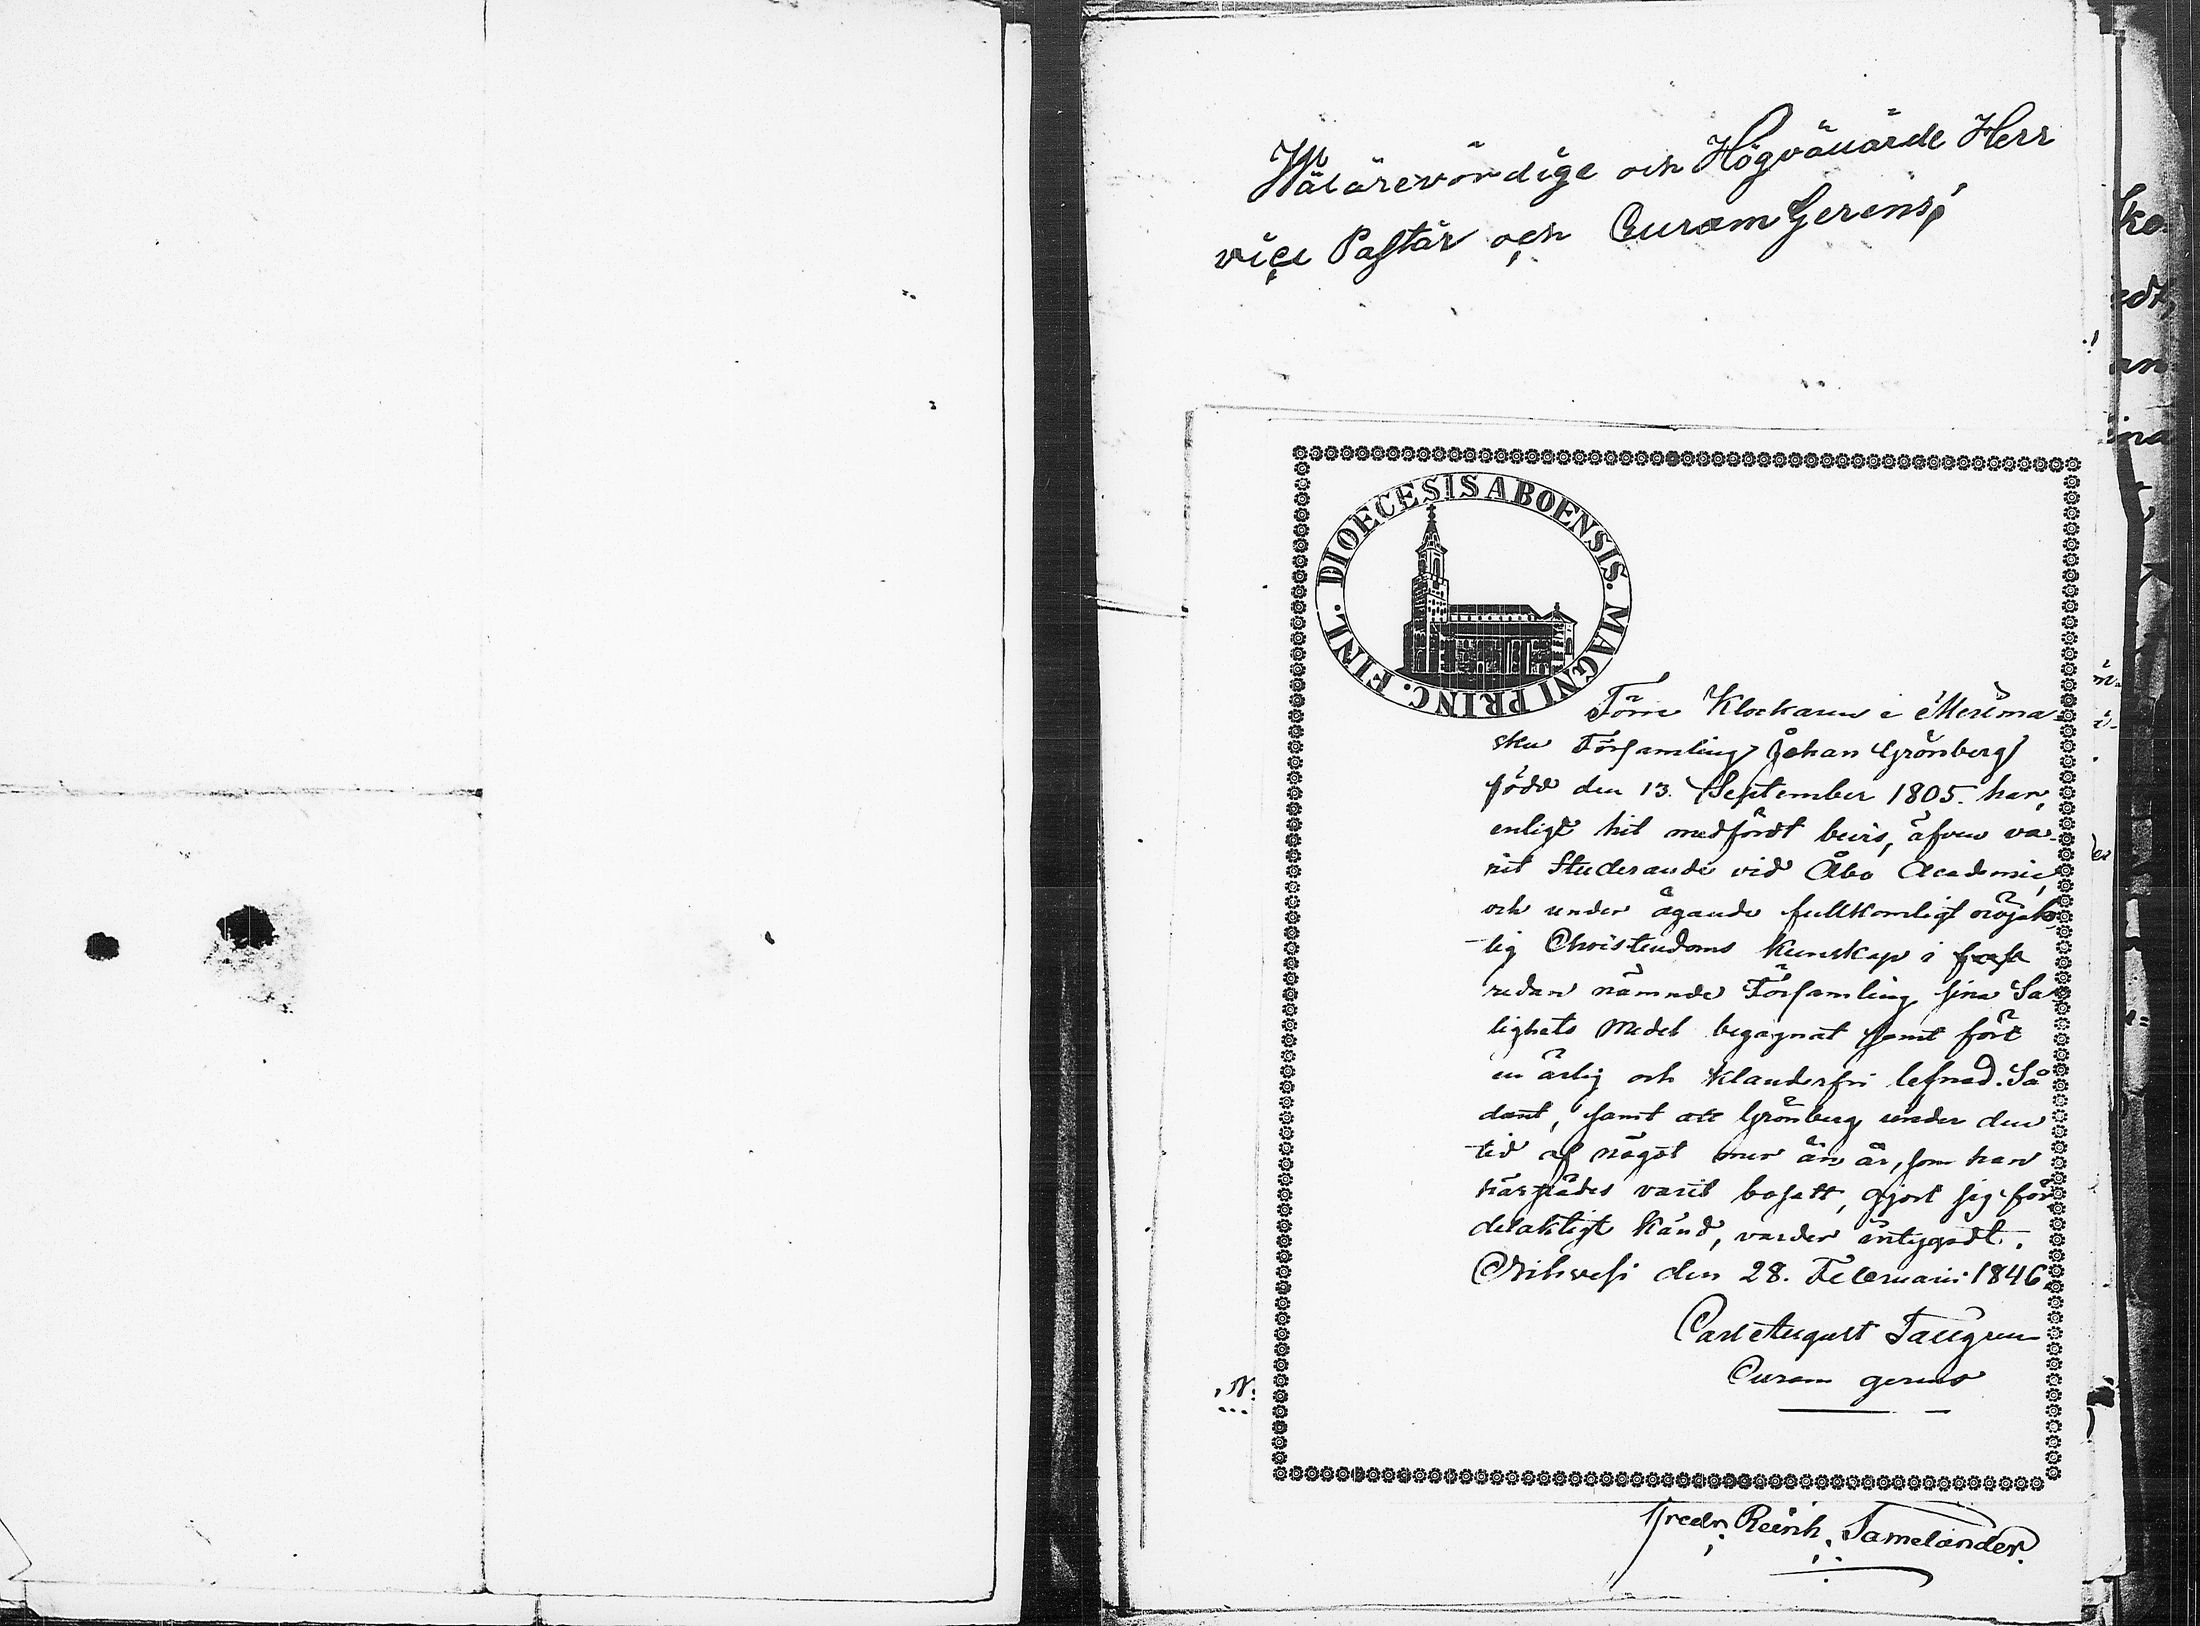 Wälärevördige och Högvällärde Herr
vice Pastor och Curam Gerens,
DIOECESIS ABOENSIS. MAGNI PRINC. FINL.
Förre Klockaren i Merima-
sku Församling Johan Grönberg
född den 13. September 1805. har,
enligt hit medfördt bevis, äfven va-
rit Studerande vid Åbo Academie,
och under ägande fullkomligt nöjak-
lig Christendoms kunskap i
redan nämnde Församling sina Sa-
lighets Medel begagnat samt fört
en ärlig och klanderfri lefnad. Så
dant, samt att Grönberg under den
tid af något mer än år, som han
härstädes varit bosatt, gjort sig för
delaktigt känd, varder intygadt.
Orihvesi den 28. Februarii 1846.
Carl August Tallgren
Curam gerens
N:
Fredr. Reinh. Tamelander.